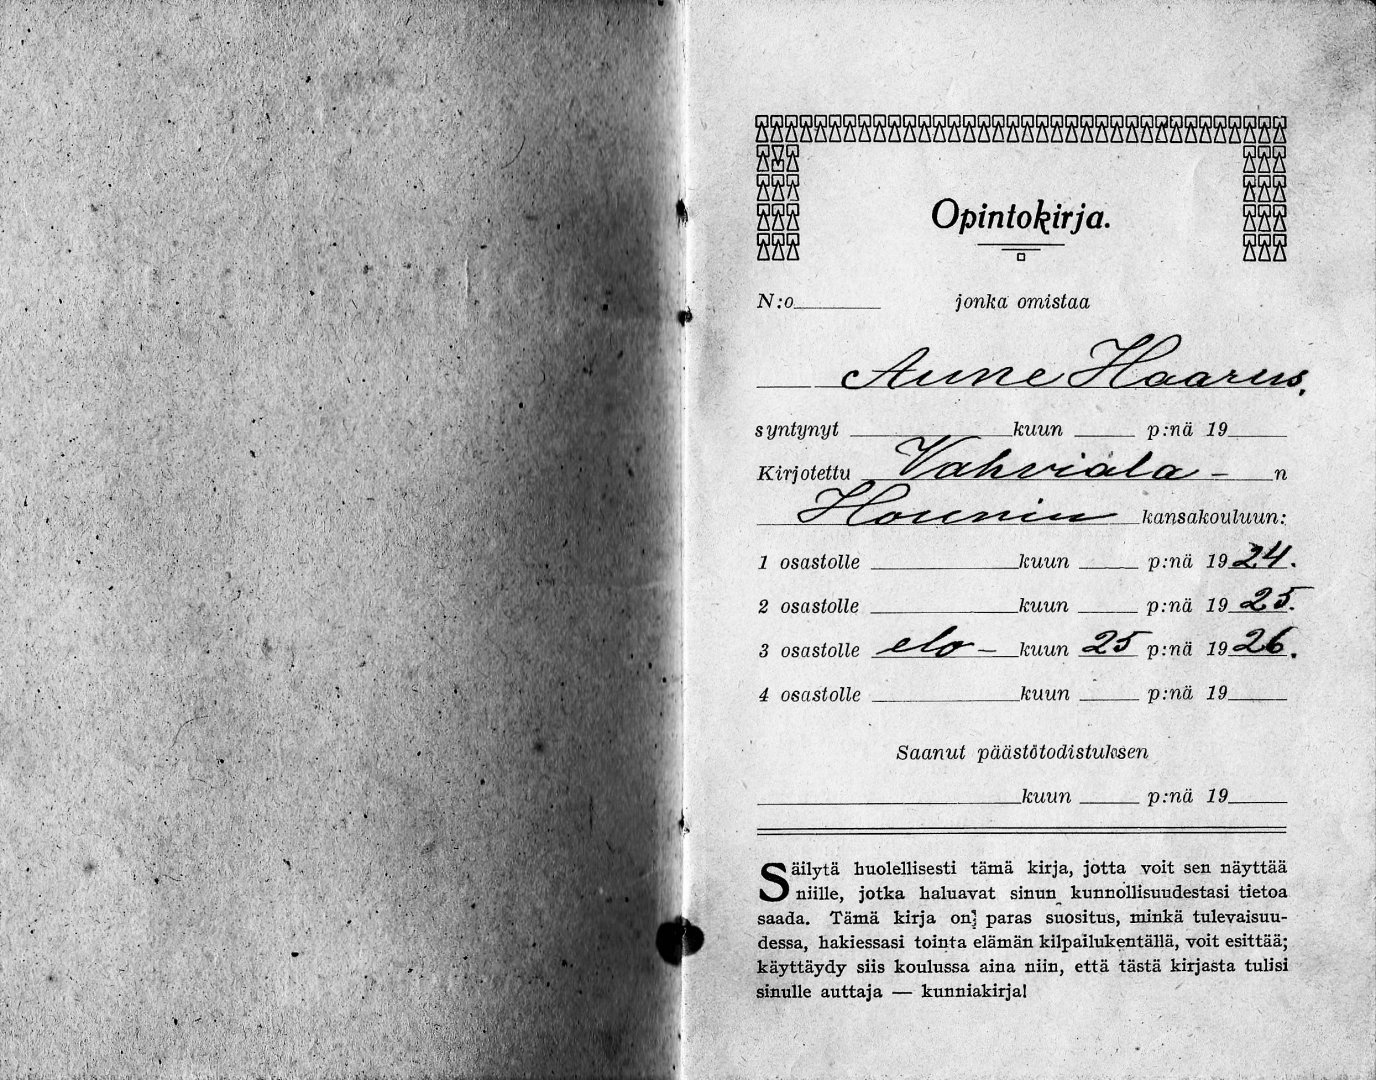 Opintokirja.
N:o jonka omistaa
Aune Haarus,
syntynyt kuun p:nä 19
Kirjotettu Vahviala - n
Hounin kansakouluun:
1 osastolle kuun p:nä 1924.
2 osastolle kuun p:nä 1925.
3 osastolle elo- kuun 25 p:nä 1926.
4 osastolle kuun p:nä 19
Saanut päästötodistuksen
kuun p:nä 19
Säilytä huolellisesti tämä kirja, jotta voit sen näyttää
niille, jotka haluavat sinun kunnollisuudestasi tietoa
saada. Tämä kirja on paras suositus, minkä tulevaisuu-
dessa, hakiessasi tointa elämän kilpailukentällä, voit esittää;
käyttäydy siis koulussa aina niin, että tästä kirjasta tulisi
sinulle auttaja — kunniakirja!